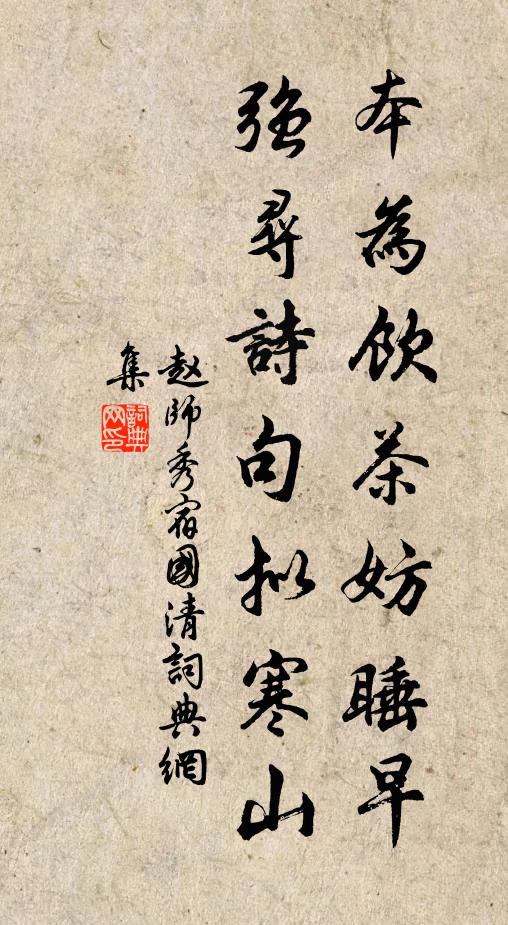 本為飲茶妨睡早
強尋詩句擬寒山
赵師秀宿國清詞典網
集
詞典
网印